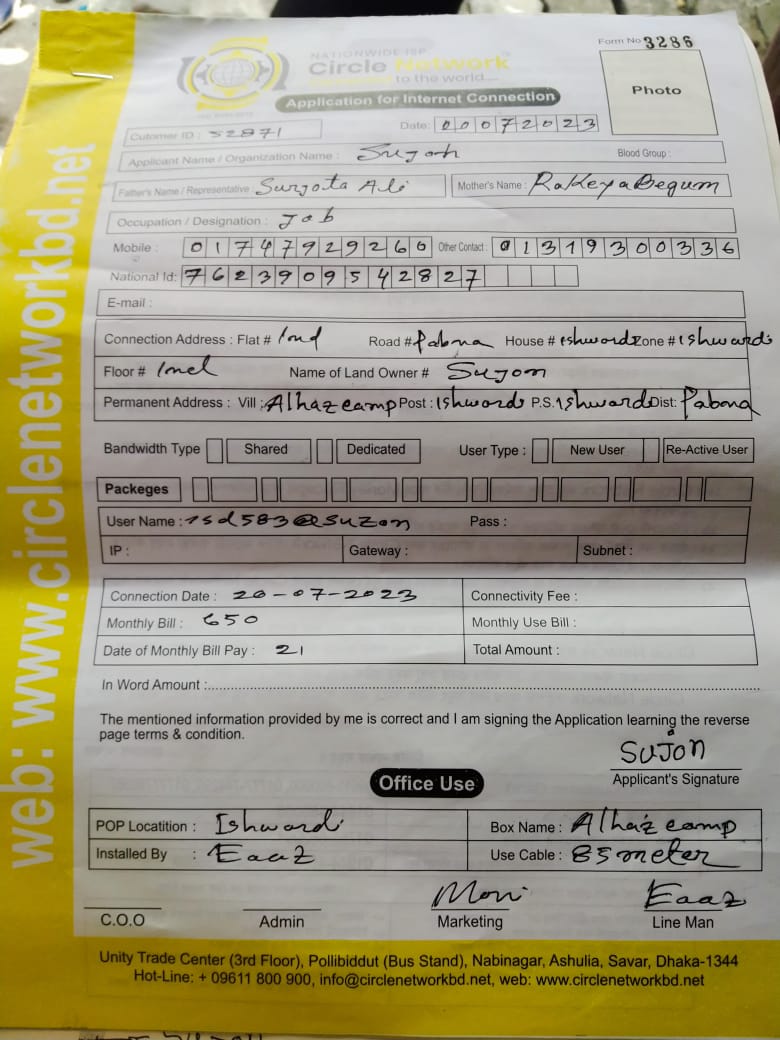 Form No 3286
NATIONWIDE ISP
Circle Network
to the world....
Application for Internet Connection
Photo
Date: 00072023
Cutomer ID : 52871
Applicant Name / Organization Name : Sujon Blood Group :
Father's Name / Representative : Surjota Ali Mother's Name : RakeyaBegum
Occupation / Designation : Job
Mobile : 01747929266 Other Contact : 01319300336
National Id: 7623909542827
E-mail :
Connection Address : Flat # 1nd Road # Pabna House # ishwordi Zone # ishwardi
Floor # Name of Land Owner # Sujon
Permanent Address : Vill : Alhaz camp Post : Ishwordi P.S. Ishwardi Dist: Pabna
Bandwidth Type Shared Dedicated User Type : New User Re-Active User
Packeges
User Name : isd583@suzon Pass :
IP : Gateway : Subnet :
Connection Date : 20-07-2023 Connectivity Fee :
Monthly Bill : 650 Monthly Use Bill :
Date of Monthly Bill Pay : 21 Total Amount :
In Word Amount :
The mentioned information provided by me is correct and I am signing the Application learning the reverse
page terms & condition.
SUJON
Applicant's Signature
Office Use
POP Locatition : Ishwardi Box Name : Alhaz camp
Installed By : Eaaz Use Cable : 85 meter
Moni Eaaz
C.O.O Admin Marketing Line Man
Unity Trade Center (3rd Floor), Pollibiddut (Bus Stand), Nabinagar, Ashulia, Savar, Dhaka-1344
Hot-Line: + 09611 800 900, info@circlenetworkbd.net, web: www.circlenetworkbd.net
web: www.circlenetworkbd.net